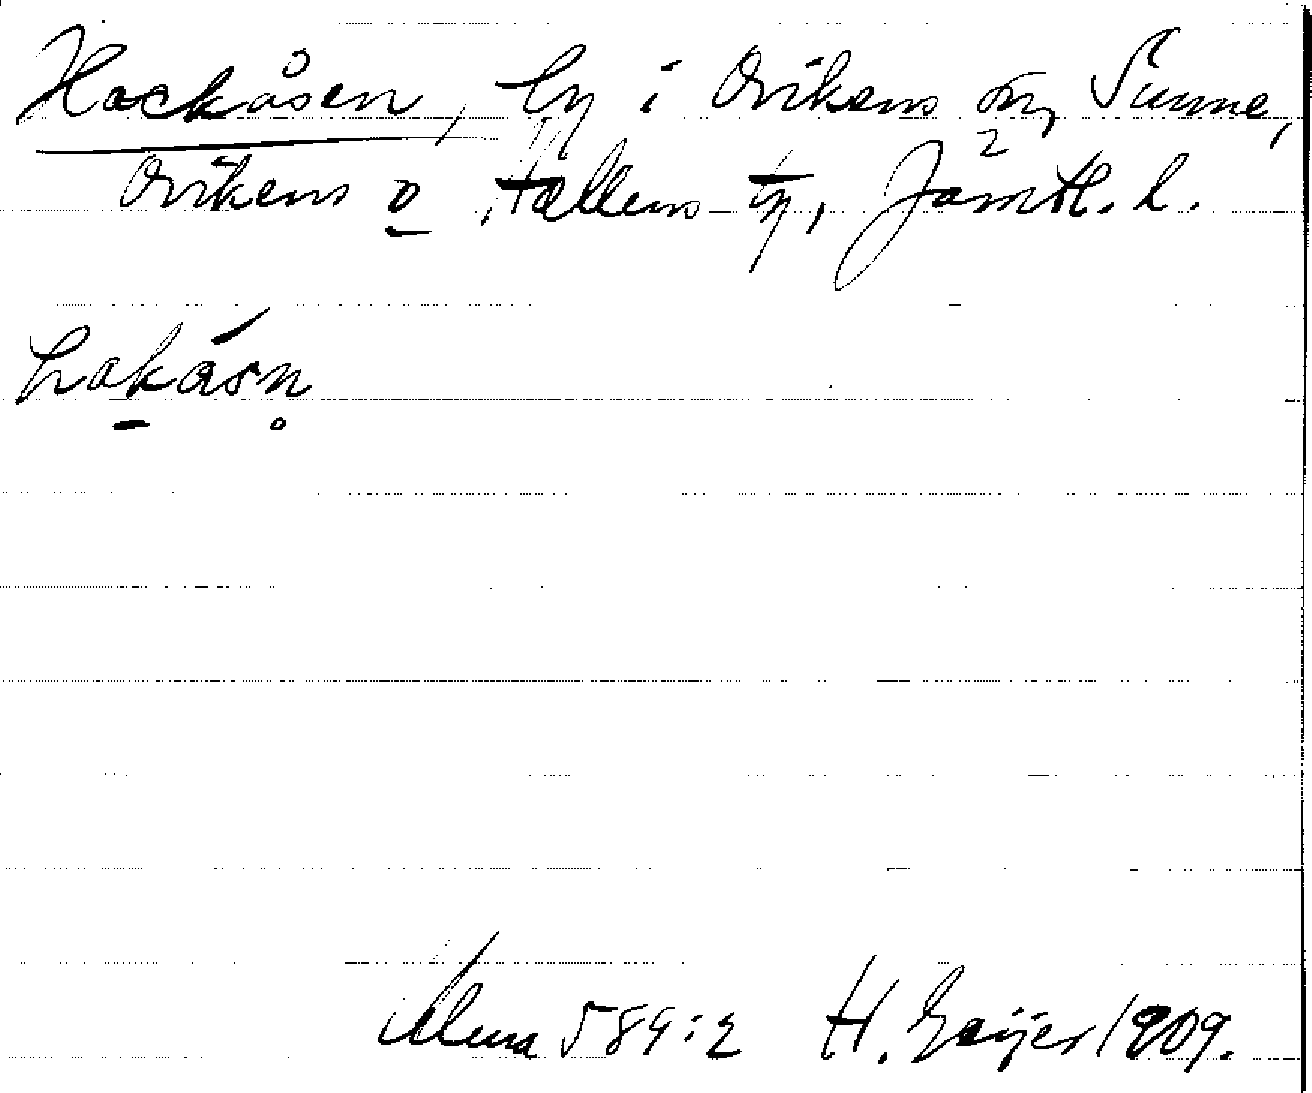 Hackåsen, by i Ovikens sn, Sunne,
Ovikens o Hallens tg, Jämtl. l.
hakásn
589:2 H. Geijer 1909.